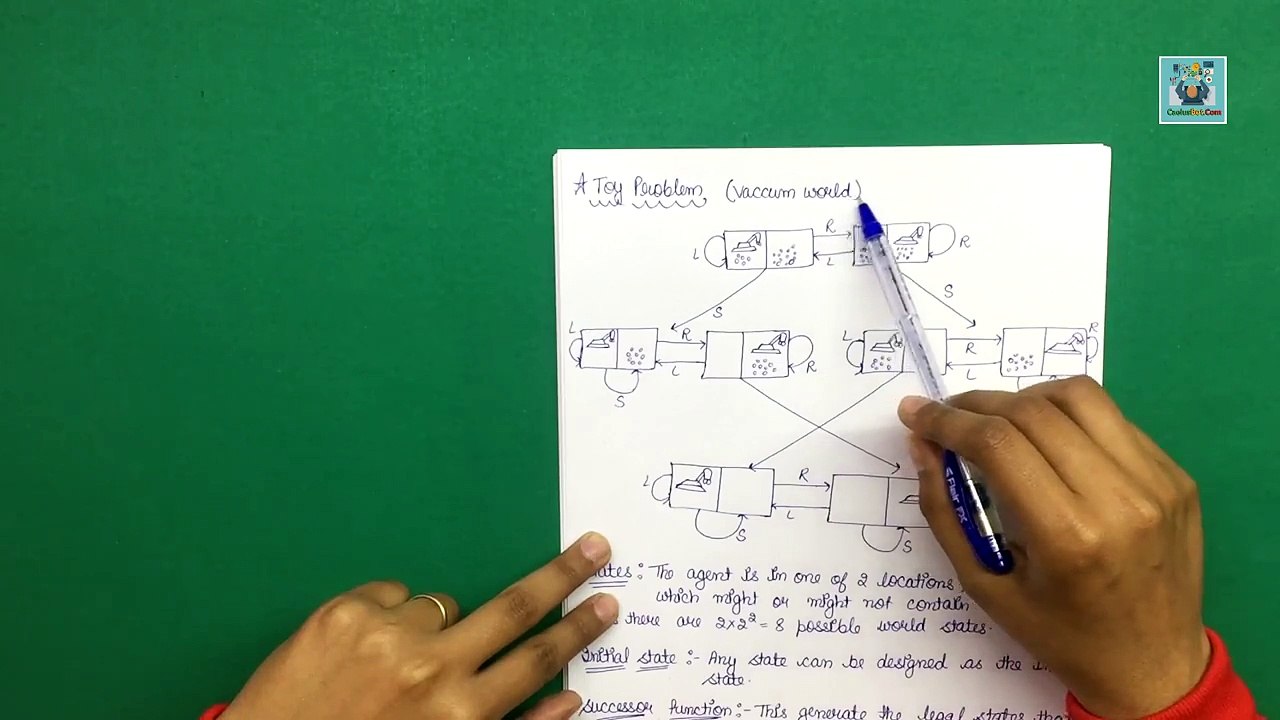 A Toy Problem (Vaccum world)
R
L L R
S S
L R L R R
L R L
S
L R
L
S S
States: The agent is in one of 2 locations,
which might or might not contain
there are 2x2²=8 possible world states.
Initial state :- Any state can be designed as the
state.
Successor Function:- This generate the legal states
CactusBot.Com
Flair FX